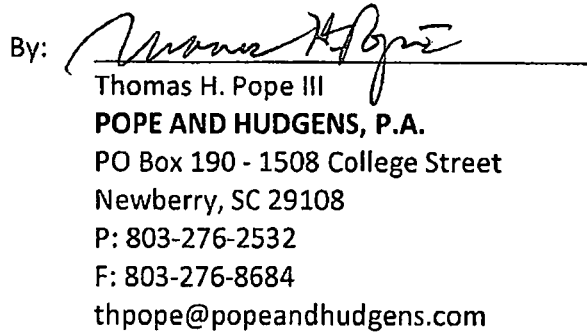 By: Thomas H. Pope
Thomas H. Pope III
POPE AND HUDGENS, P.A.
PO Box 190 - 1508 College Street
Newberry, SC 29108
P: 803-276-2532
F: 803-276-8684
thpope@popeandhudgens.com